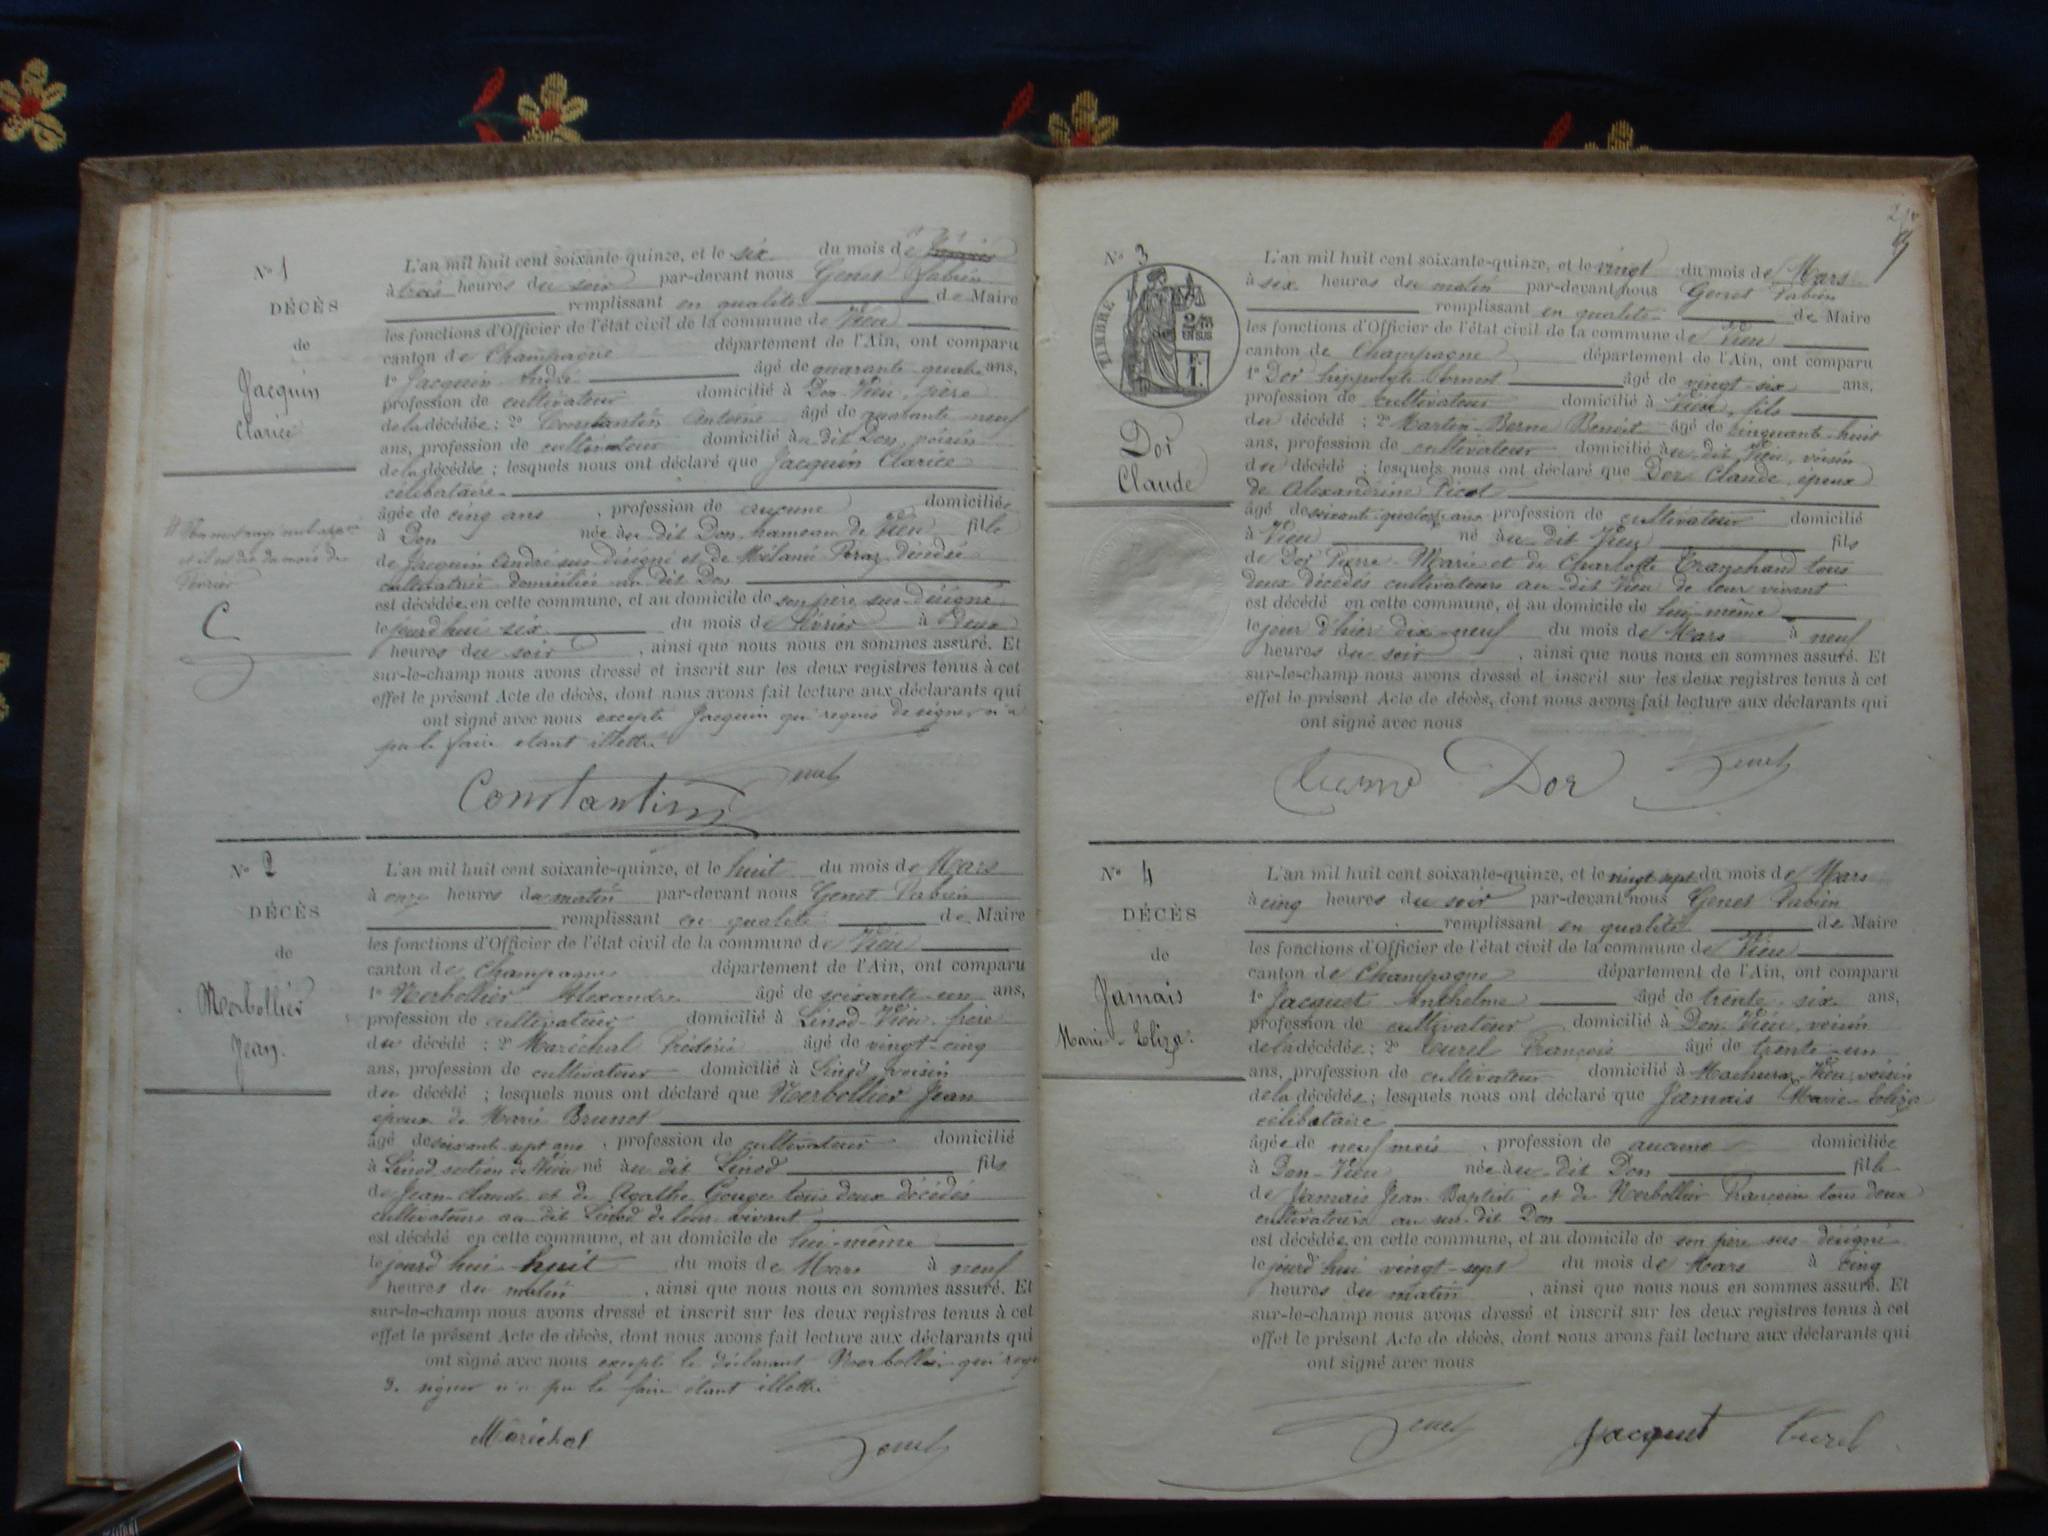 N° 1
DÉCÈS
de
Jacquin
Clarice
L'an mil huit cent soixante-quinze, et le six du mois de
à trois heures du soir par-devant nous Genet Fabien
remplissant en qualité de Maire
les fonctions d'Officier de l'état civil de la commune de Vieu
canton de Champagne département de l'Ain, ont comparu
1° Jacquin André âgé de quarante-quatre ans,
profession de cultivateur domicilié à Don-Vieu, père
de la décédée ; 2° Constantin Antoine âgé de quarante-neuf
ans, profession de cultivateur domicilié au dit Don, voisin
de la décédée ; lesquels nous ont déclaré que Jacquin Clarice
célibataire
âgée de cinq ans , profession de aucune domiciliée
à Don née au dit Don, hameau de Vieu fille
de Jacquin André sus-désigné et de Mélanie décédée
cultivatrice domiciliée au dit Don
est décédée en cette commune, et au domicile de son père sus-désigné
le jourd'hui six du mois de février à deux
heures du soir , ainsi que nous nous en sommes assuré. Et
sur-le-champ nous avons dressé et inscrit sur les deux registres tenus à cet
effet le présent Acte de décès, dont nous avons fait lecture aux déclarants qui
ont signé avec nous excepté Jacquin qui requis de signer n'a
pu le faire étant illettré
Genet
Constantin
et il est dit du mois de
Février
N° 2
DÉCÈS
de
Nerbollier
Jean
L'an mil huit cent soixante-quinze, et le huit du mois de Mars
à onze heures du matin par-devant nous Genet Fabien
remplissant en qualité de Maire
les fonctions d'Officier de l'état civil de la commune de Vieu
canton de Champagne département de l'Ain, ont comparu
1° Nerbollier Alexandre âgé de soixante-un ans,
profession de cultivateur domicilié à Linod-Vieu, frère
du décédé ; 2° Maréchal Frédéric âgé de vingt-cinq
ans, profession de cultivateur domicilié à Linod, voisin
du décédé ; lesquels nous ont déclaré que Nerbollier Jean
époux de Marie Brunet
âgé de soixante-sept ans , profession de cultivateur domicilié
à Linod section de Vieu né au dit Linod fils
de Jean-Claude et de Agathe Gouge tous deux décédés
cultivateurs au dit Linod de leur vivant
est décédé en cette commune, et au domicile de lui-même
le jourd'hui huit du mois de Mars à neuf
heures du matin , ainsi que nous nous en sommes assuré. Et
sur-le-champ nous avons dressé et inscrit sur les deux registres tenus à cet
effet le présent Acte de décès, dont nous avons fait lecture aux déclarants qui
ont signé avec nous excepté le déclarant Nerbollier qui requis
de signer n'a pu le faire étant illettré
Maréchal Genet
N° 3
TIMBRE
Dor
Claude
L'an mil huit cent soixante-quinze, et le vingt du mois de Mars
à six heures du matin par-devant nous Genet Fabien
remplissant en qualité de Maire
les fonctions d'Officier de l'état civil de la commune de Vieu
canton de Champagne département de l'Ain, ont comparu
1° Dor hippolyte Ernest âgé de vingt-six ans,
profession de cultivateur domicilié à Vieu, fils
du décédé ; 2° Martin-Berne Benoit âgé de cinquante-huit
ans, profession de cultivateur domicilié au dit Vieu, voisin
du décédé ; lesquels nous ont déclaré que Dor Claude, époux
de Alexandrine Picot
âgé de soixante-quatorze ans profession de cultivateur domicilié
à Vieu né au dit Vieu fils
de Dor Pierre-Marie et de Charlotte Tranchand tous
deux décédés cultivateurs au dit Vieu de leur vivant
est décédé en cette commune, et au domicile de lui-même
le jour d'hier dix-neuf du mois de Mars à neuf
heures du soir , ainsi que nous nous en sommes assuré. Et
sur-le-champ nous avons dressé et inscrit sur les deux registres tenus à cet
effet le présent Acte de décès, dont nous avons fait lecture aux déclarants qui
ont signé avec nous
Dor Genet
N° 4
DÉCÈS
de
Jamais
Marie-Eliza
L'an mil huit cent soixante-quinze, et le vingt sept du mois de Mars
à cinq heures du soir par-devant nous Genet Fabien
remplissant en qualité de Maire
les fonctions d'Officier de l'état civil de la commune de Vieu
canton de Champagne département de l'Ain, ont comparu
1° Jacquet Anthelme âgé de trente-six ans,
profession de cultivateur domicilié à Don-Vieu, voisin
de la décédée ; 2° Curel François âgé de trente-un
ans, profession de cultivateur domicilié à Machuraz-Vieu, voisin
de la décédée ; lesquels nous ont déclaré que Jamais Marie-Eliza
célibataire
âgée de neuf mois , profession de aucune domiciliée
à Don-Vieu née au dit Don fille
de Jamais Jean-Baptiste et de Nerbollier Françoise tous deux
cultivateurs au sus-dit Don
est décédée en cette commune, et au domicile de son père sus-désigné
le jourd'hui vingt-sept du mois de Mars à cinq
heures du matin , ainsi que nous nous en sommes assuré. Et
sur-le-champ nous avons dressé et inscrit sur les deux registres tenus à cet
effet le présent Acte de décès, dont nous avons fait lecture aux déclarants qui
ont signé avec nous
Genet Jacquet Curel